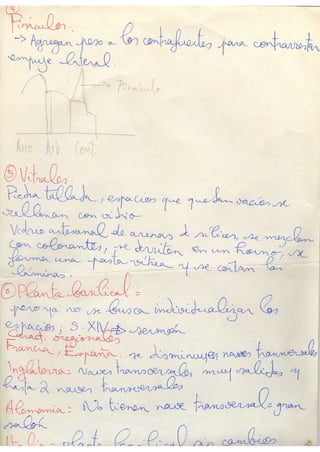 ④
Pináculos:
-> Agregan peso a los contrafuertes para contrarrestar
empuje lateral.
Pináculo
Arco Arb Cont.
⑤ Vitrales:
Piedra tallada, espacios que quedan vacíos se
rellenan con vidrio
Vidrio artesanal de arenas d sílices, se mezclan
con colorantes, se derriten en un horno, se
forma una pasta vítrea y se cortan las
láminas.
⑥ Planta basilical =
pero ya no se busca individualizar los
espacios; S. XIV → sermón
Caract. regionales
Francia, España: se disminuyen naves transversales
Inglaterra: naves transversales muy salidas y
hasta 2 naves transversales
Alemania: No tienen nave transversal = gran
salón
Italia = planta basilical sin cambios